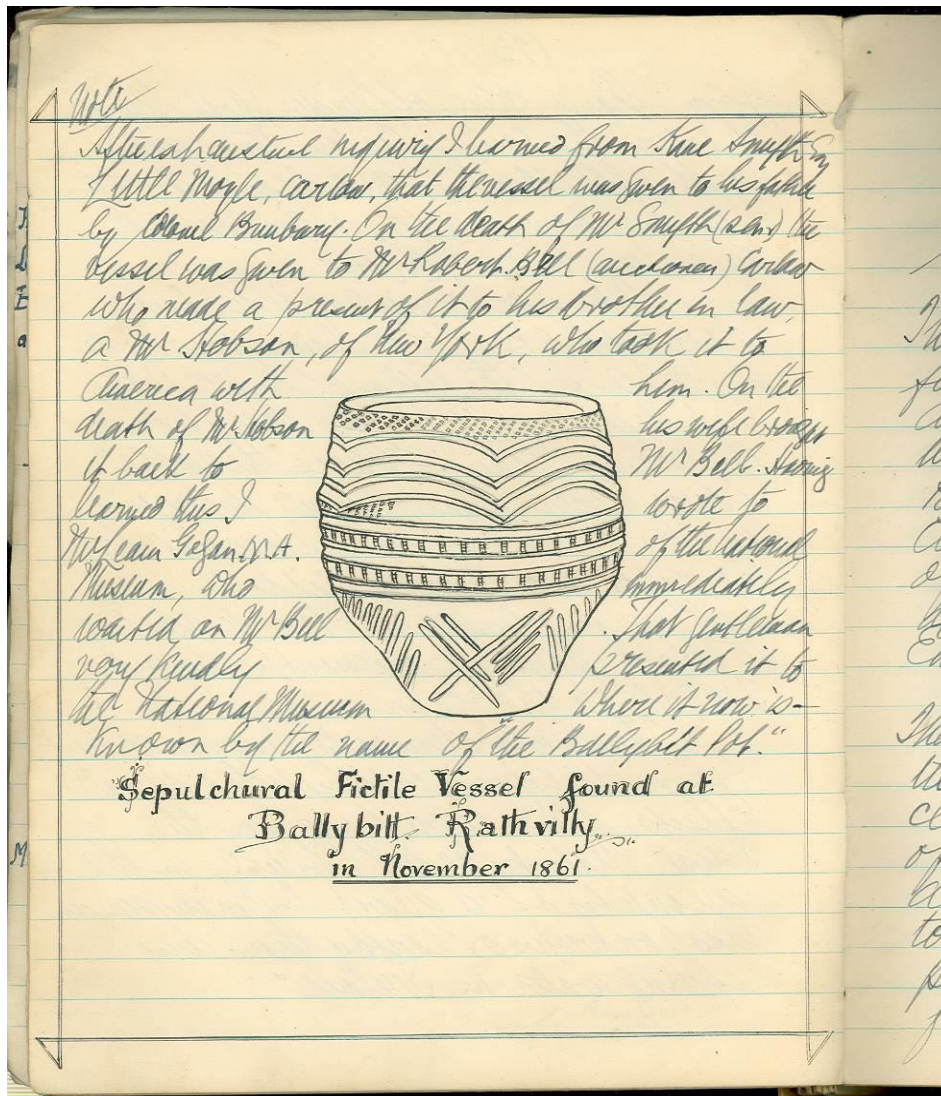 Note
After exhaustive inquiry I learned from Kane Smyth Esq
Little Moyle, Carlow, that the vessel was given to his father
by Colonel Bunbury. On the death of Mr Smyth (senr) the
vessel was given to Mr Robert. Bell (auctioneer) Carlow
who made a present of it to his brother in law,
a Mr Hobson, of New York, who took it to
America with him. On the
death of Mr Hobson his wife brought
it back to Mr Bell. Having
learned this I wrote to
Mr M.A. of the National
Museum, who immediately
waited on Mr Bell. That gentleman
very kindly presented it to
the National Museum Where it now is—
Known by the name of "the Ballybit Pot."
Sepulchural Fictile Vessel found at
Ballybitt Rathvilly
in November 1861.